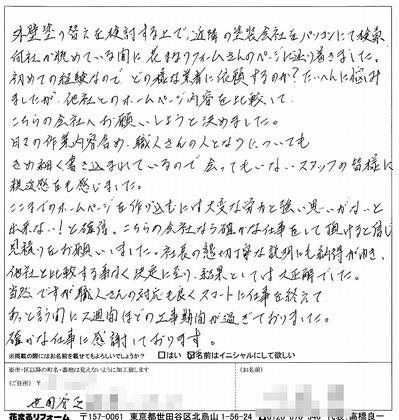 外壁塗り替えを検討する上で、近隣の塗装会社をパソコンにて検索
何社か眺めている間に花まるリフォームさんのページに辿り着きました。
初めての経験なので、どの様な業者に依頼するのか?たいへんに悩み
ましたが、他社とのホームページ内容を比較して、
こちらの会社へお願いしようと決めました。
日々の作業内容含め、職人さんの人となりについても
きめ細く書き込まれているので会ってもいないスタッフの皆様に
親近感をも感じました。
ここまでのホームページを作り込むには大変な労力と強い思いがないと
出来ない!と確信、こちらの会社なら確かな仕事をして頂けると信じ
見積りをお願いしました。社長の懇切丁寧な説明にも納得がゆき、
他社と比較する事なく決定に至り、結果としては大正解でした。
当然ですが職人さんの対応も良くスマートに仕事を終えて
あっと言う間に二週間ほどの工事期間が過ぎておりました。
確かな仕事に感謝しております。
※掲載の際にはお名前を載せてもよろしいでしょうか? □はい ☑名前はイニシャルにして欲しい
※市・区以降の町名・番地は見えないように加工致します
(ご住所) 〒
(お名前)
世田谷区
花まるリフォーム 〒157-0061 東京都世田谷区北烏山1-56-24 代表:高橋良一